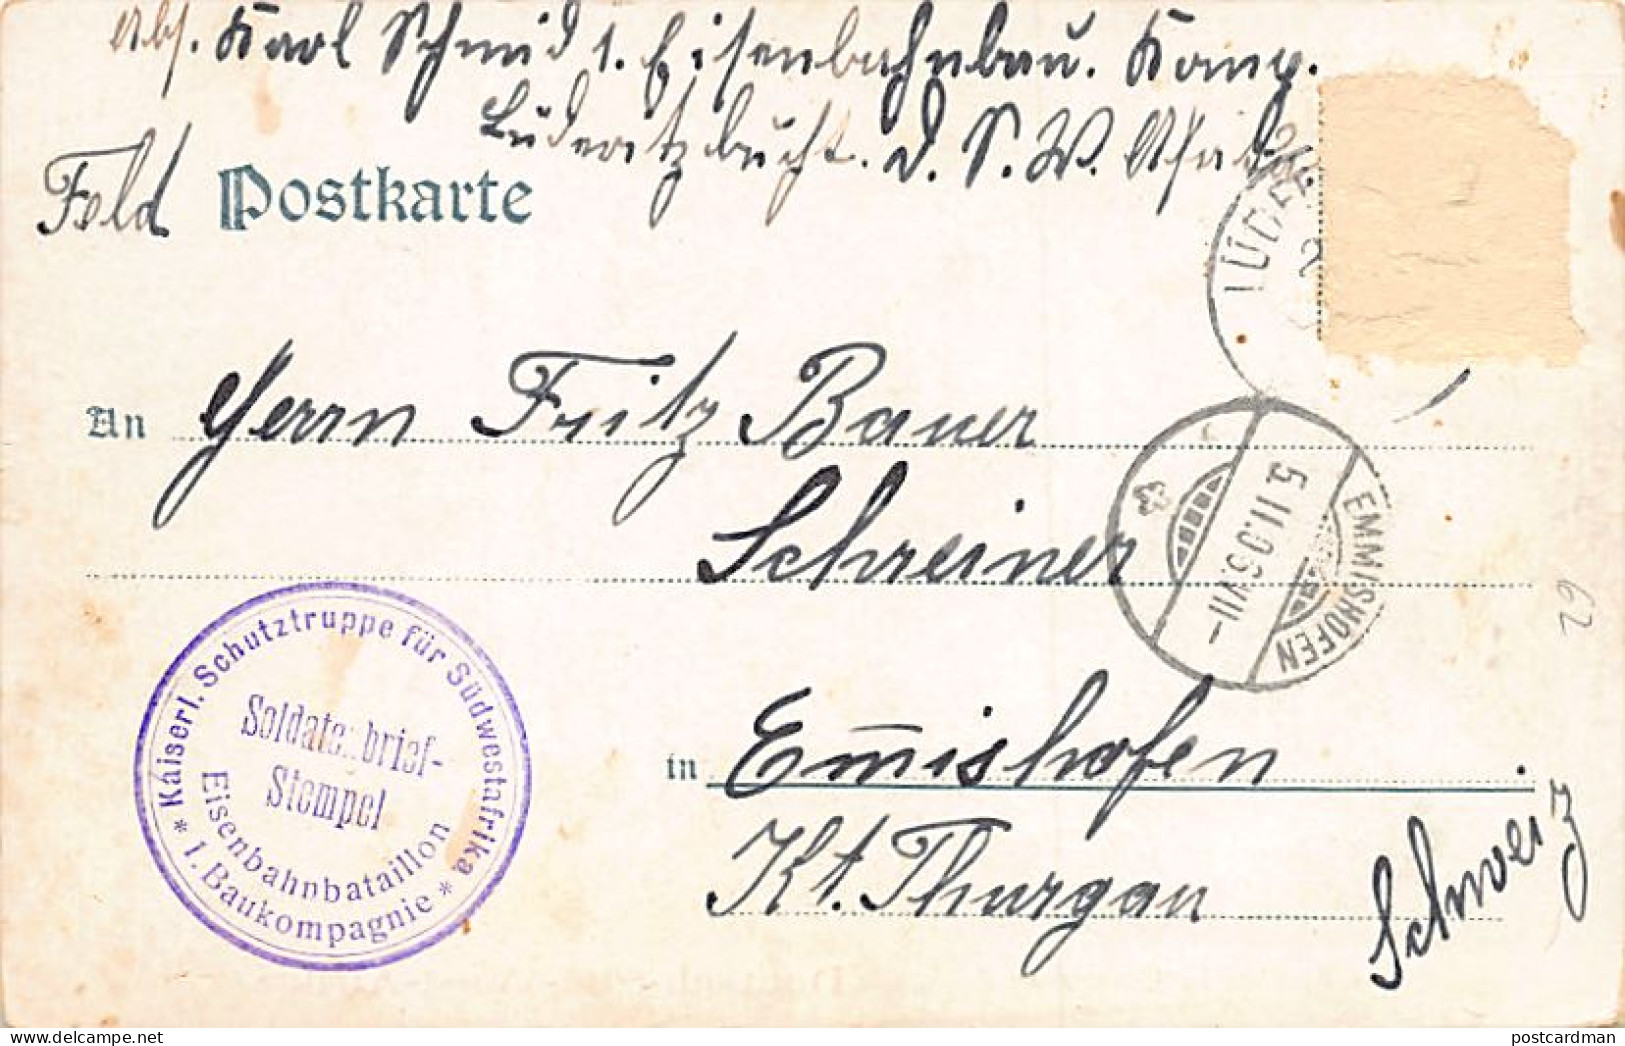 Abs. Karl Schmid 1. Eisenbahnbau. Komp.
Lüderitzbucht. D. S. W. Afrika
Feld Postkarte
LÜDER
2
An Herrn Fritz Bauer
Schreiner
in Emishofen
Kt. Thurgau
Schweiz
EMMISHOFEN
5.II.06.VII-
* Kaiserl. Schutztruppe für Südwestafrika *
Soldatenbrief-
Stempel
Eisenbahnbataillon
1. Baukompagnie
29
delcampe.net
postcardman